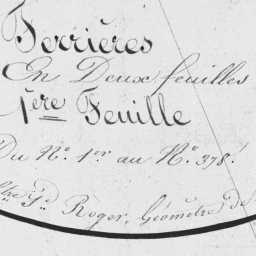 Ferrières
En Deux feuilles
1ère Feuille
Du N.º 1.er au N.º 378.
Roger, Géomètre de